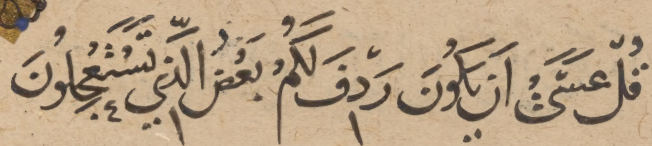 قُلْ عَسَىٰٓ اَنْ يَكُونَ رَدِفَ لَكُمْ بَعْضُ الَّذِي تَسْتَعْجِلُونَ